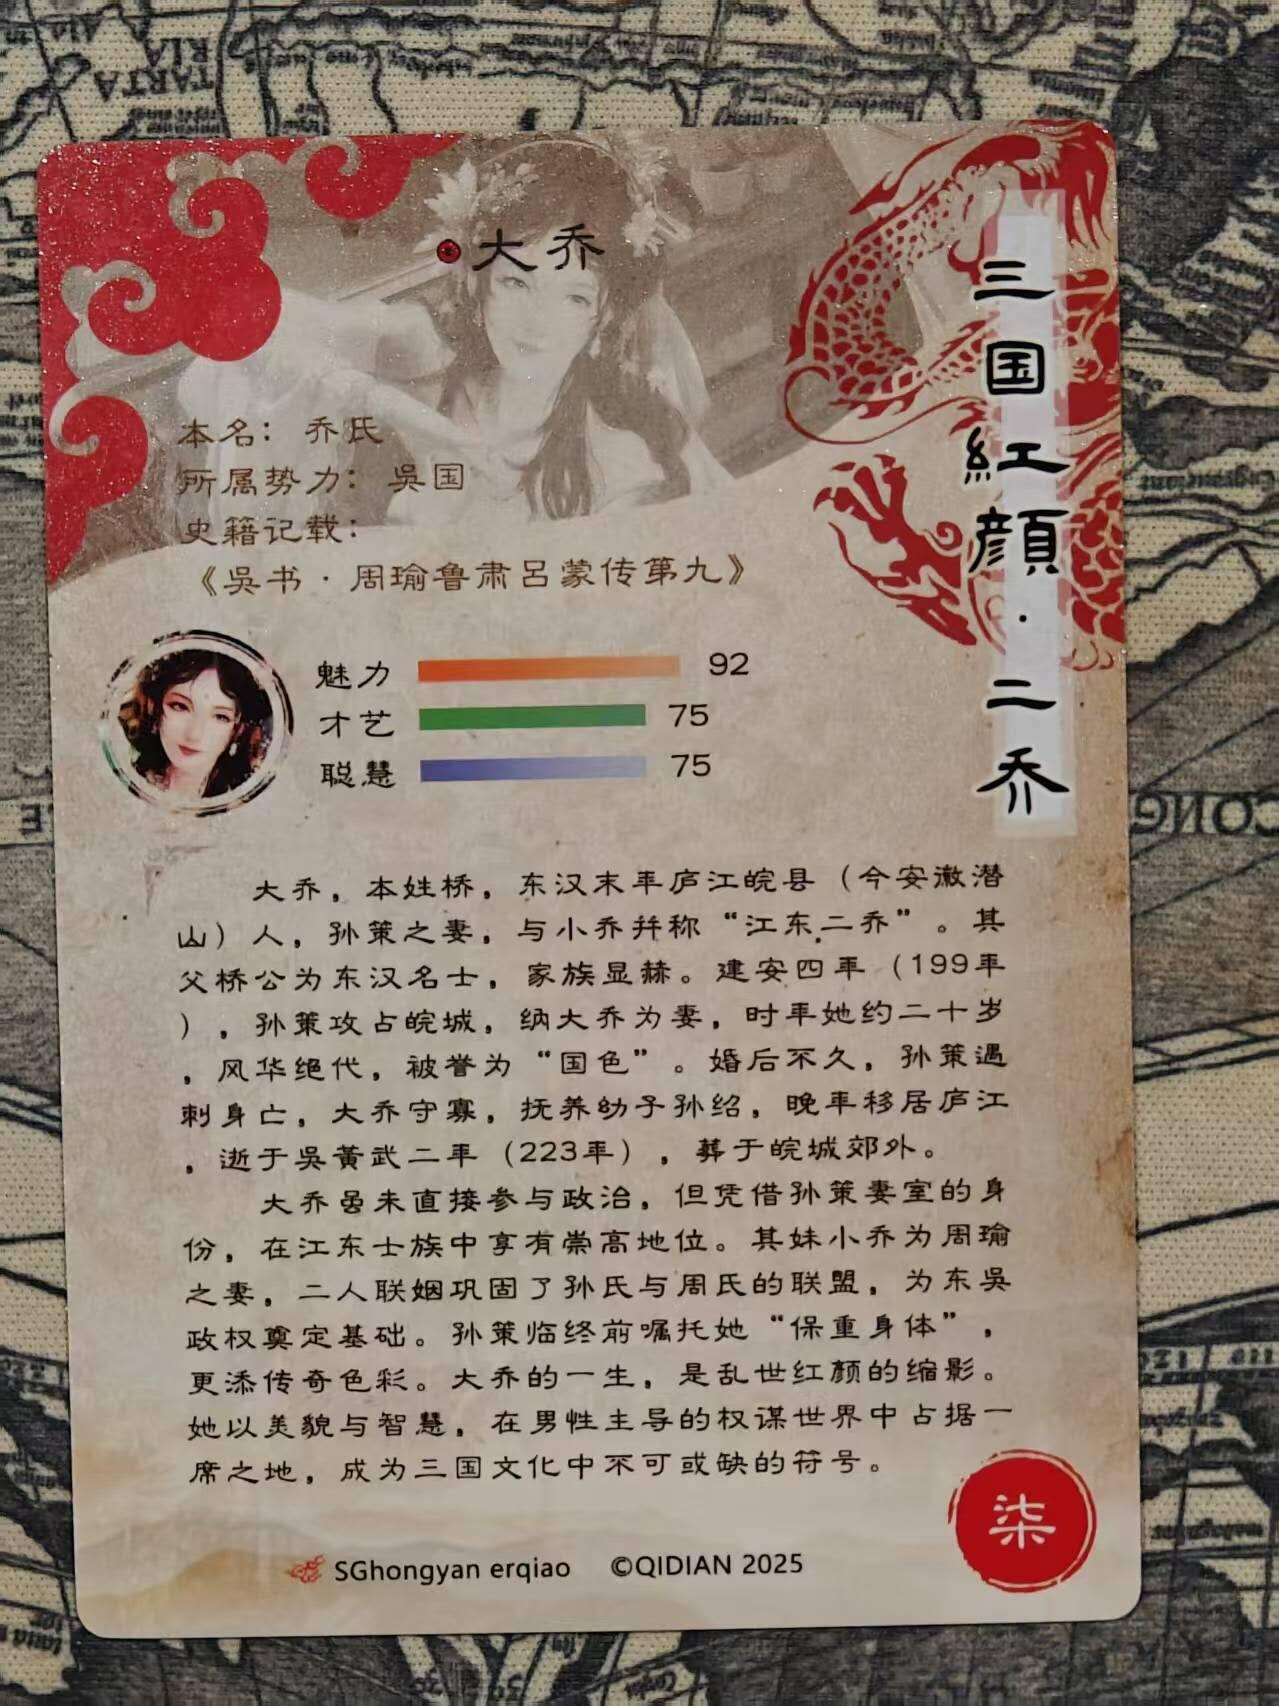 大乔
三国紅顔·二乔
本名：乔氏
所属势力：吳国
史籍记载：
《吳书·周瑜鲁肃吕蒙传第九》
魅力 92
才艺 75
聪慧 75
大乔，本姓桥，东汉末年庐江皖县（今安徽潜
山）人，孙策之妻，与小乔并称“江东二乔”。其
父桥公为东汉名士，家族显赫。建安四年（199年
），孙策攻占皖城，纳大乔为妻，时年她约二十岁
，风华绝代，被誉为“国色”。婚后不久，孙策遇
刺身亡，大乔守寡，抚养幼子孙绍，晚年移居庐江
，逝于吳黄武二年（223年），葬于皖城郊外。
大乔虽未直接参与政治，但凭借孙策妻室的身
份，在江东士族中享有崇高地位。其妹小乔为周瑜
之妻，二人联姻巩固了孙氏与周氏的联盟，为东吳
政权奠定基础。孙策临终前嘱托她“保重身体”，
更添传奇色彩。大乔的一生，是乱世红颜的缩影。
她以美貌与智慧，在男性主导的权谋世界中占据一
席之地，成为三国文化中不可或缺的符号。
柒
SGhongyan erqiao ©QIDIAN 2025
TARTA
RIA
CONG